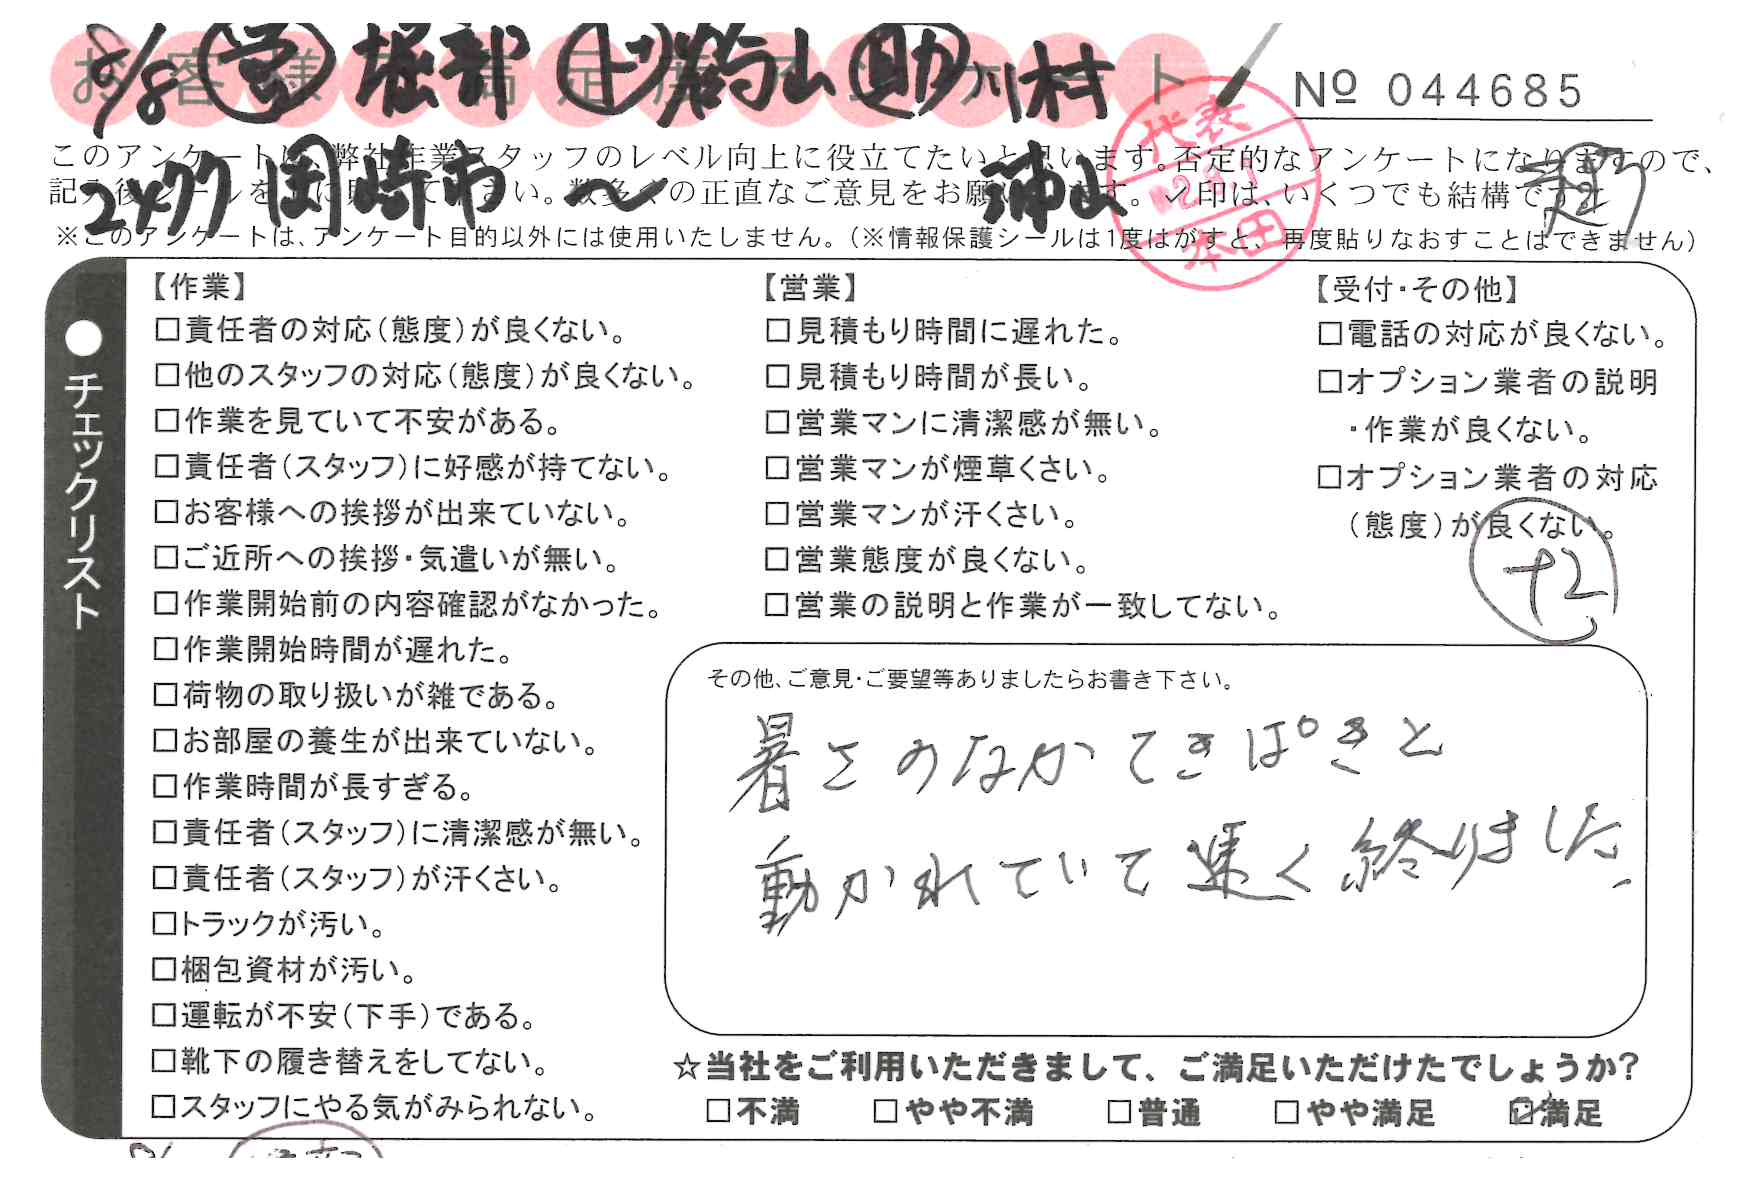 お客様満足度アンケート
8/8 営 堀部 駒山 助 川村
No 044685
このアンケートは、弊社作業スタッフのレベル向上に役立てたいと思います。否定的なアンケートになりますので、
記入後シールを上に貼って下さい。数多くの正直なご意見をお願いします。✓印は、いくつでも結構です。
岡崎市 〜
代表
本田
※このアンケートは、アンケート目的以外には使用いたしません。(※情報保護シールは1度はがすと、再度貼りなおすことはできません)
●チェックリスト
【作業】
□責任者の対応(態度)が良くない。
□他のスタッフの対応(態度)が良くない。
□作業を見ていて不安がある。
□責任者(スタッフ)に好感が持てない。
□お客様への挨拶が出来ていない。
□ご近所への挨拶・気遣いが無い。
□作業開始前の内容確認がなかった。
□作業開始時間が遅れた。
□荷物の取り扱いが雑である。
□お部屋の養生が出来ていない。
□作業時間が長すぎる。
□責任者(スタッフ)に清潔感が無い。
□責任者(スタッフ)が汗くさい。
□トラックが汚い。
□梱包資材が汚い。
□運転が不安(下手)である。
□靴下の履き替えをしてない。
□スタッフにやる気がみられない。
【営業】
□見積もり時間に遅れた。
□見積もり時間が長い。
□営業マンに清潔感が無い。
□営業マンが煙草くさい。
□営業マンが汗くさい。
□営業態度が良くない。
□営業の説明と作業が一致してない。
【受付・その他】
□電話の対応が良くない。
□オプション業者の説明
・作業が良くない。
□オプション業者の対応
(態度)が良くない。
+2
その他、ご意見・ご要望等ありましたらお書き下さい。
暑さのなかてきぱきと
動かれていて速く終りました。
☆当社をご利用いただきまして、ご満足いただけたでしょうか?
□不満 □やや不満 □普通 □やや満足 ☑満足